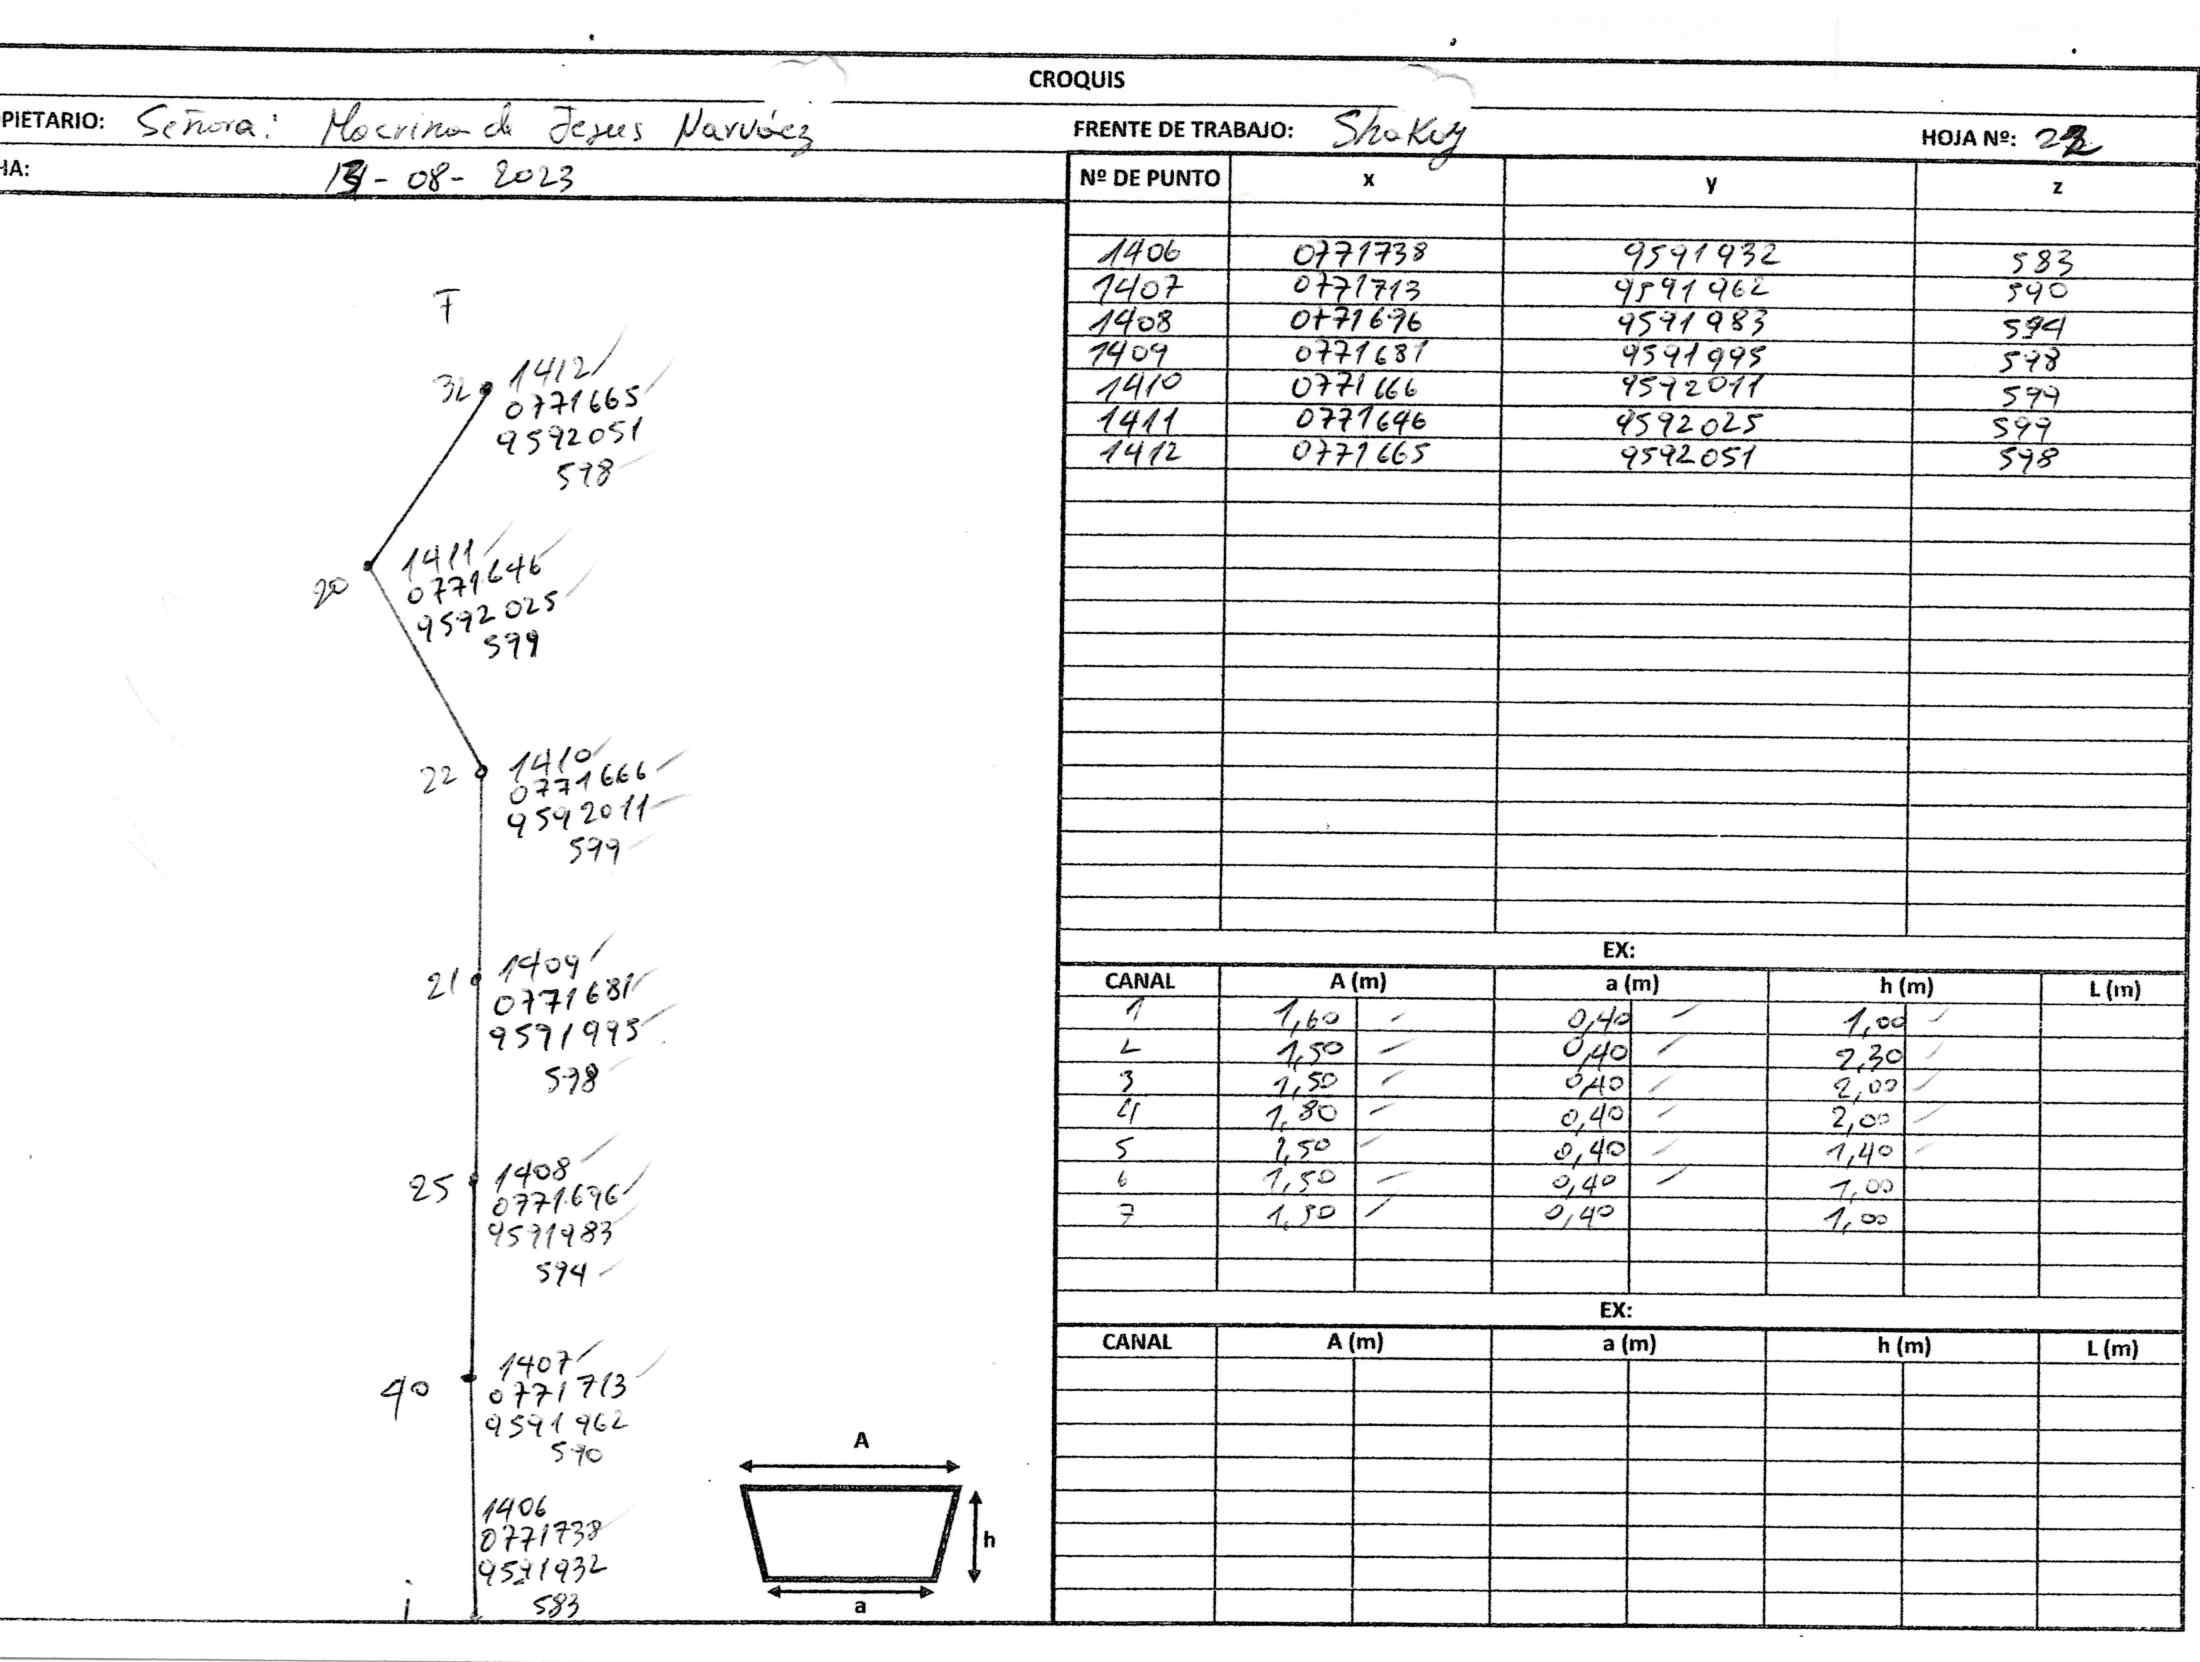 CROQUIS
PIETARIO: Señora: Macrina de Jesus Narváez FRENTE DE TRABAJO: Shakay HOJA Nº: 22
HA: 13-08-2023
Nº DE PUNTO x y z
1406 0771738 9591932 583
1407 0771713 9591962 590
1408 0771696 9591983 594
1409 0771681 9591995 598
1410 0771666 9592011 599
1411 0771646 9592025 599
1412 0771665 9592051 598
F
32 1412
0771665
9592051
598
20 1411
0771646
9592025
599
22 1410
0771666
9592011
599
21 1409
0771681
9591995
598
25 1408
0771696
9591983
594
40 1407
0771713
9591962
590
1406
0771738
9591932
i 583
A
h
a
EX:
CANAL A (m) a (m) h (m) L (m)
1 1,60 0,40 1,00
2 1,50 0,40 2,30
3 1,50 0,40 2,00
4 1,80 0,40 2,00
5 1,50 0,40 1,40
6 1,50 0,40 1,00
7 1,50 0,40 1,00
EX:
CANAL A (m) a (m) h (m) L (m)